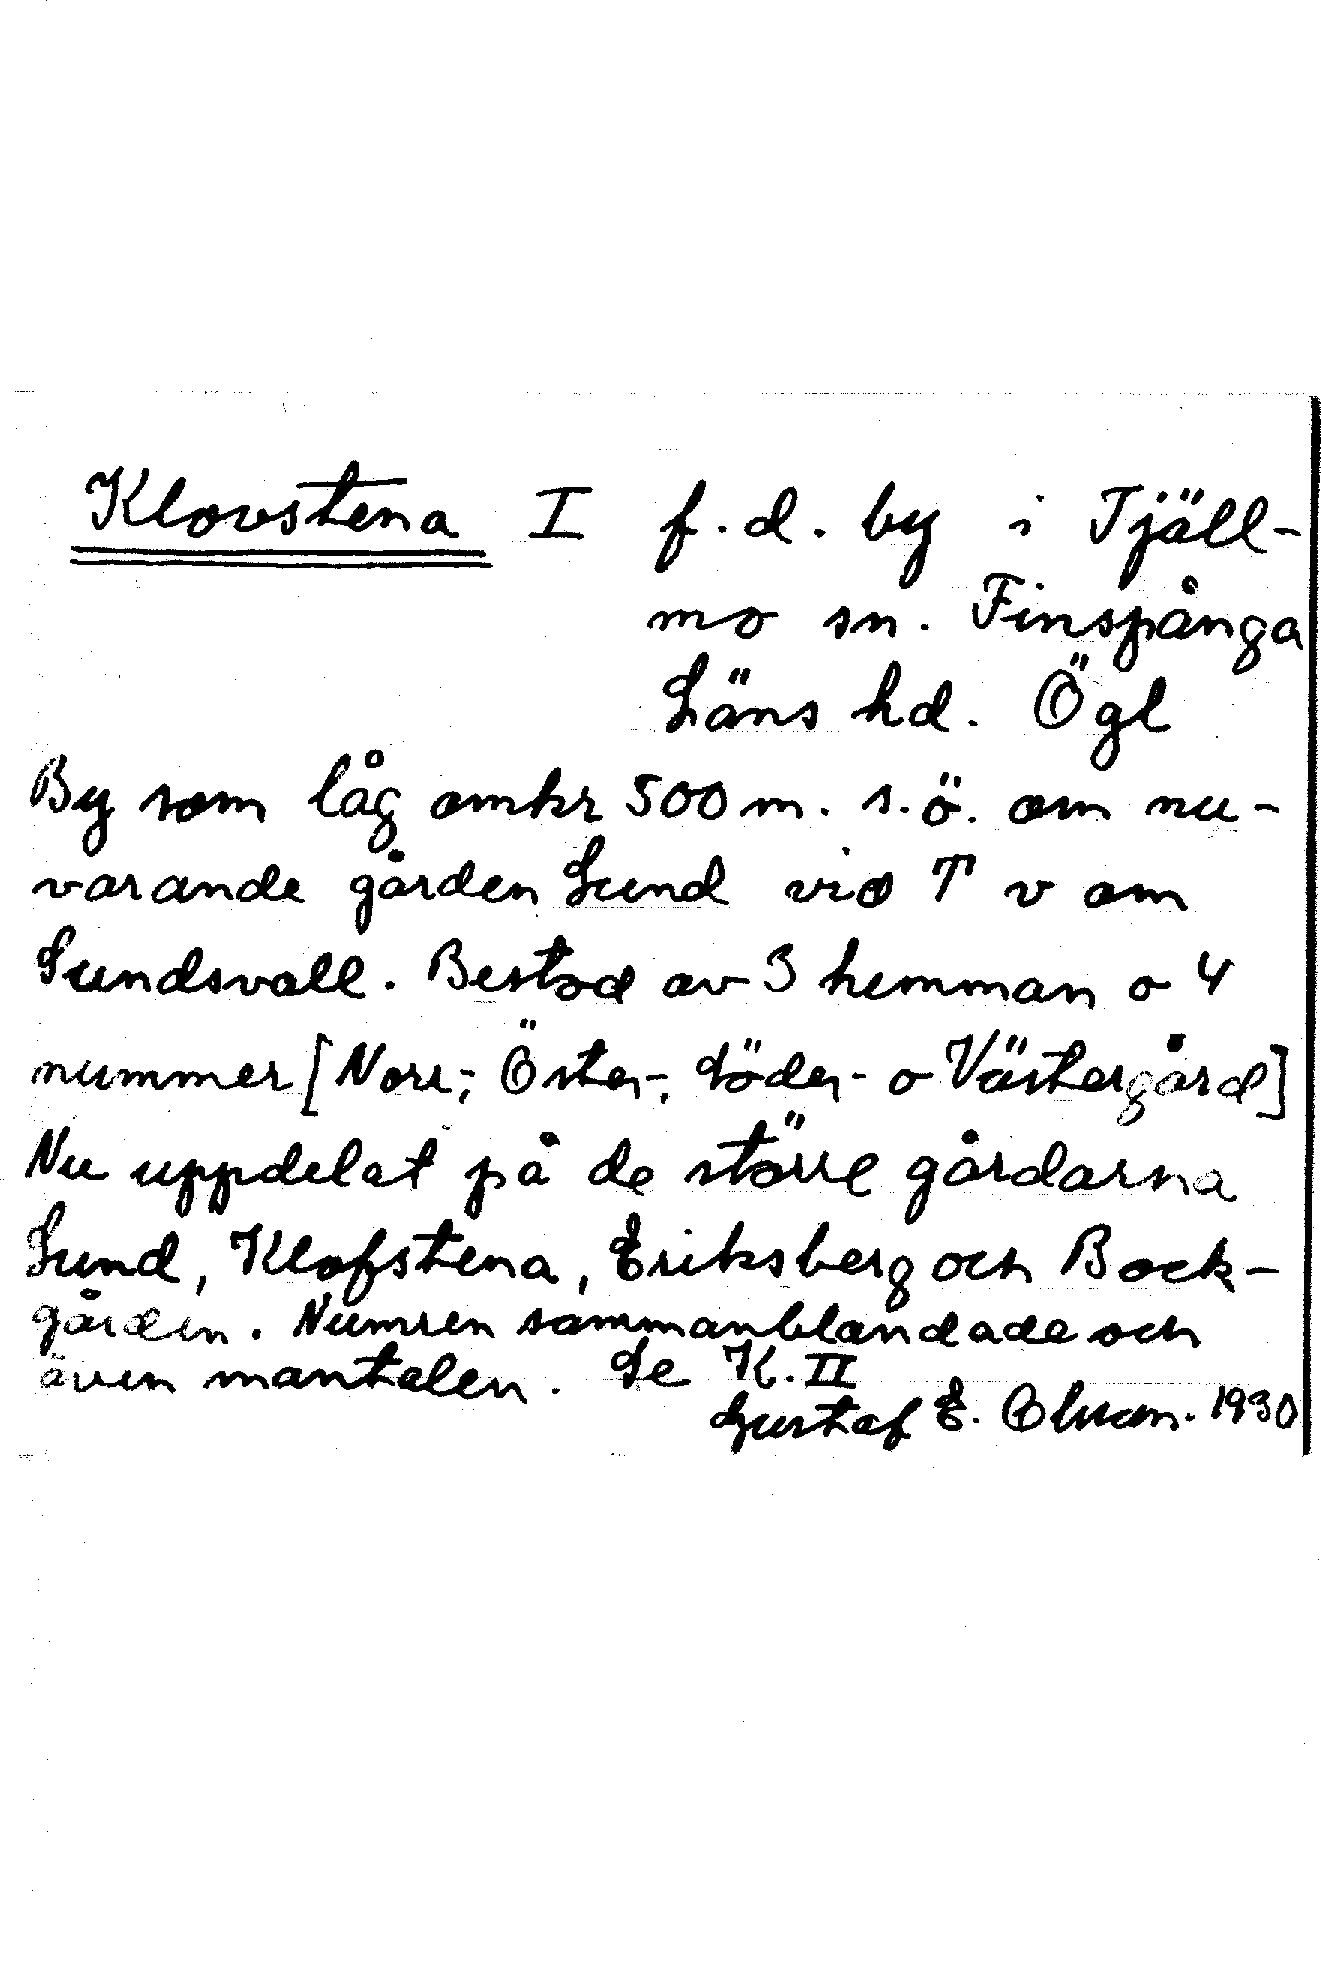 Klovstena I f.d. by i Tjäll-
mo sn. Finspånga
Läns hd. Ögl
By som låg omkr 500 m. s.ö. om nu-
varande gården Sund vid T v om
Sundsvall. Bestod av 3 hemman o 4
nummer [Norr-, Öster-, Söder- o Västergård]
Nu uppdelat på de större gårdarna
Sund, Klofstena, Eriksberg och Bock-
gården. Numren sammanblandade och
även mantalen. Se K. II
Gustaf E. Olsson. 1930